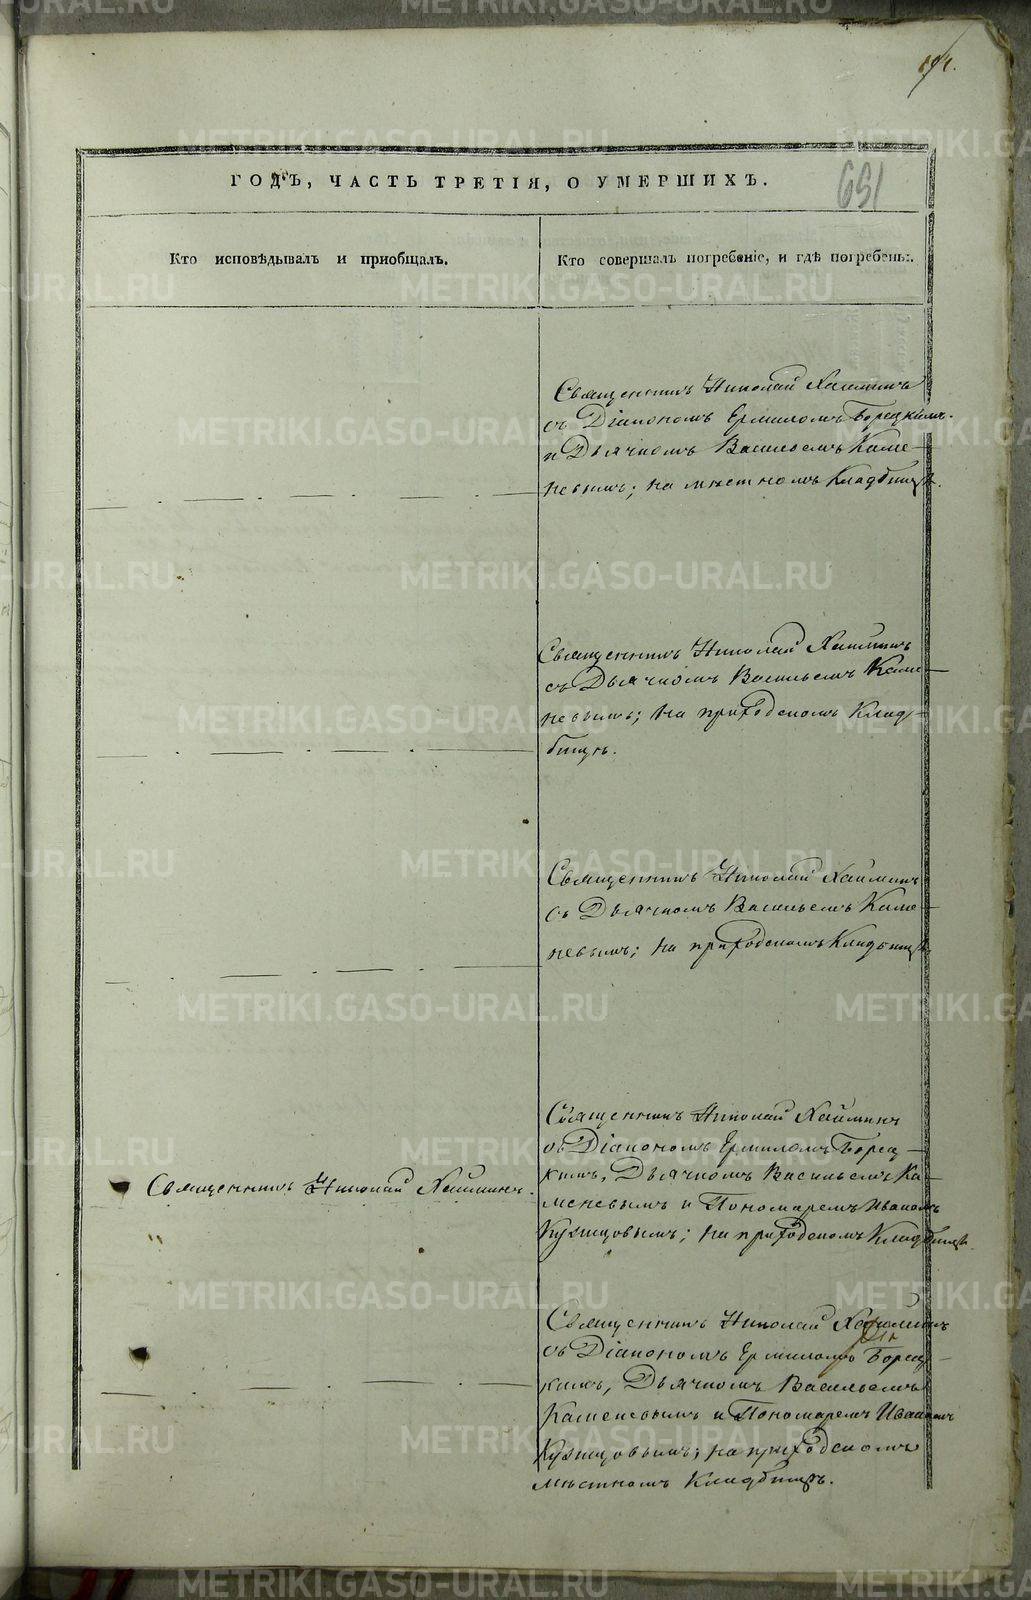 ГОДЪ, ЧАСТЬ ТРЕТІЯ, О УМЕРШИХЪ.
651
Кто исповѣдывалъ и пріобщалъ.
Кто совершалъ погребеніе, и гдѣ погребены.
Священникъ Николай Хаминъ
съ Діакономъ Ермиломъ Борецкимъ
и Дьячкомъ Васильемъ Каме-
невымъ; на мѣстномъ Кладбищѣ.
Священникъ Николай Хаминъ
съ Дьячкомъ Васильемъ Каме-
невымъ; на приходскомъ Клад-
бищѣ.
Священникъ Николай Хаминъ
съ Дьячкомъ Васильемъ Каме-
невымъ; на приходскомъ Кладбищѣ.
Священникъ Николай Хаминъ.
Священникъ Николай Хаминъ
съ Діакономъ Ермиломъ Борец-
кимъ, Дьячкомъ Васильемъ Ка-
меневымъ и Пономаремъ Иваномъ
Кузнцовымъ; на приходскомъ Кладбищѣ.
Священникъ Николай Хаминъ
съ Діакономъ Ермиломъ Борец-
кимъ, Дьячкомъ Васильемъ
Каменевымъ и Пономаремъ Иваномъ
Кузнцовымъ; на приходскомъ
мѣстномъ Кладбищѣ.
METRIKI.GASO-URAL.RU